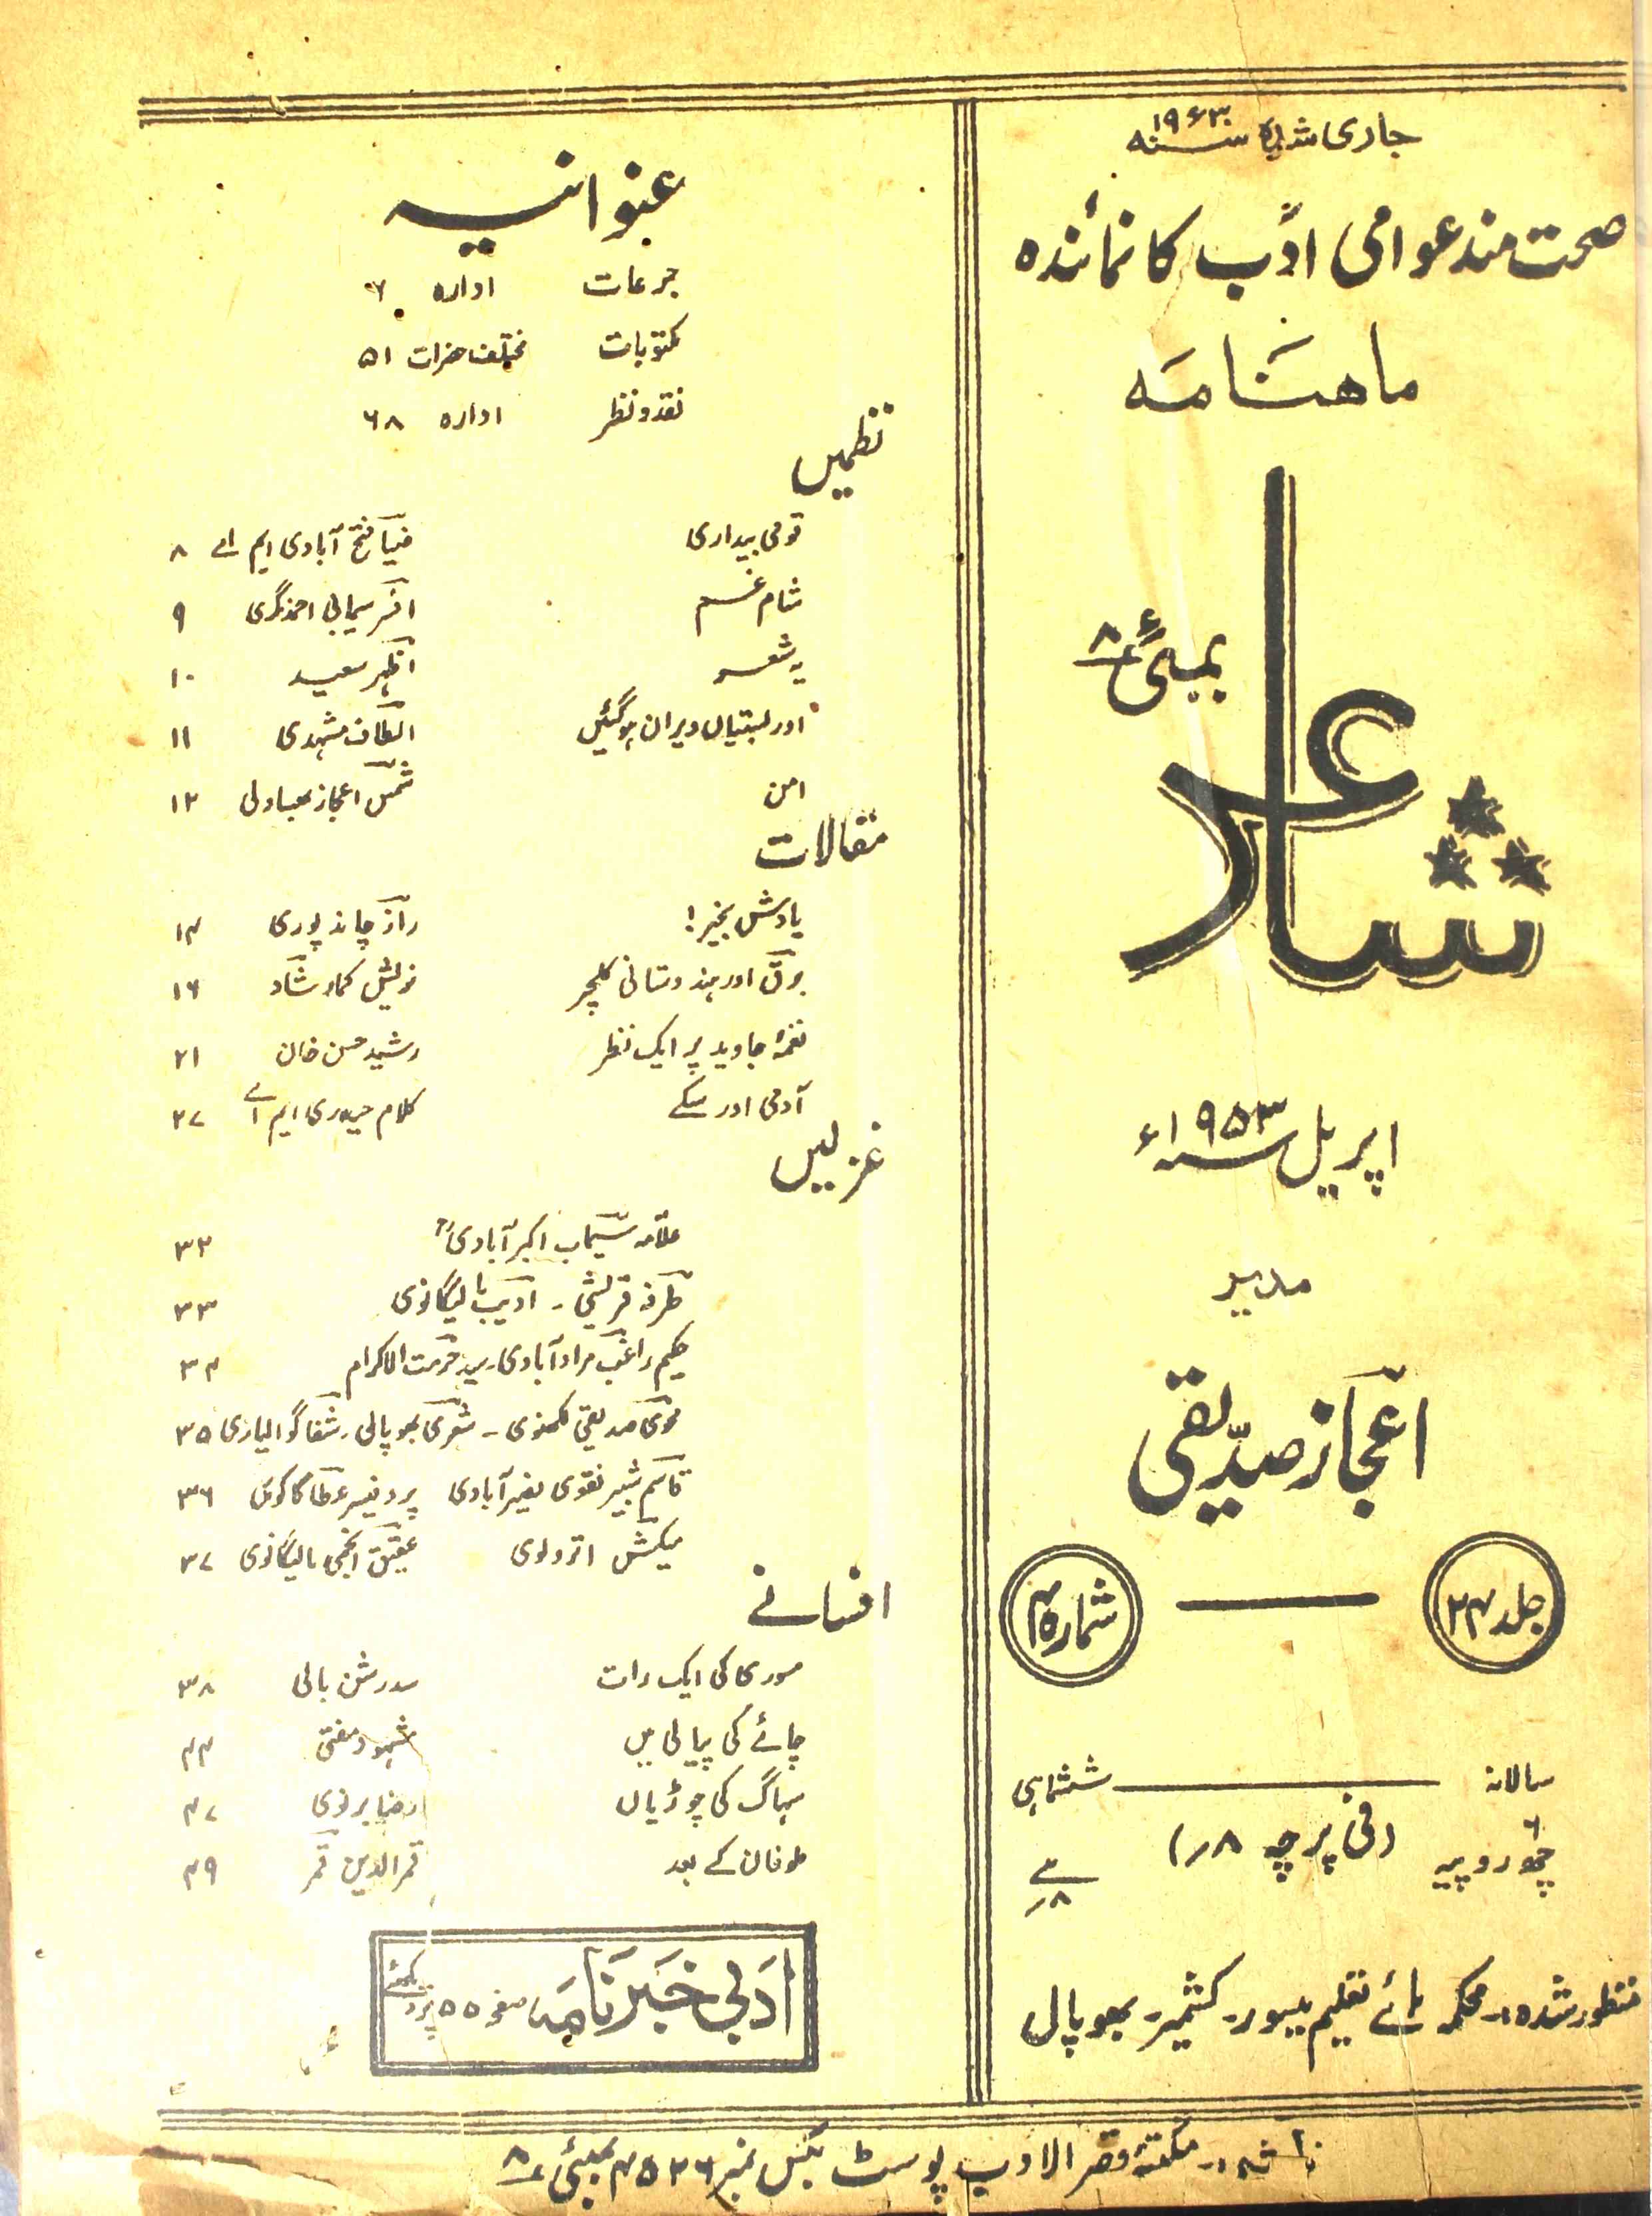 جاری شدہ سنہ ۱۹۳۰ء
صحت مند عوامی ادب کا نمائندہ
ماہنامہ
شاعر
بمبئی ۸
اپریل ۱۹۵۳ء
مدیر
اعجاز صدیقی
جلد ۲۴ — شمارہ ۴
سالانہ — ششماہی
چھ روپیہ (فی پرچہ ۸؍)
منظور شدہ:۔ محکمہ ہائے تعلیم میسور۔ کشمیر۔ بھوپال
عنوانیہ
جرعات ادارہ ۶
مکتوبات مختلف حضرات ۵۱
نقد و نظر ادارہ ۶۸
نظمیں
قومی بیداری ضیا فتح آبادی ایم اے ۸
شام غم افسر سیمابی احمد نگری ۹
یہ شعر اظہر سعید ۱۰
اور بستیاں ویران ہوگئیں الطاف مشہدی ۱۱
امن شمس اعجاز بھساولی ۱۲
مقالات
یادش بخیر! راز چاندپوری ۱۴
برق اور ہندوستانی کلچر نریش کمار شاد ۱۶
نغمۂ جاوید پر ایک نظر رشید حسن خان ۲۱
آدمی اور سکے کلام حیدری ایم اے ۲۷
غزلیں
علامہ سیماب اکبرآبادیؒ ۳۲
طرفہ قریشی ۔ ادیب مالیگانوی ۳۳
حکیم راغب مرادآبادی۔ سید حرمت الاکرام ۳۴
محوی صدیقی لکھنوی ۔ شعری بھوپالی۔ شفا گوالیاری ۳۵
قاسم شبیر نقوی نصیرآبادی پروفیسر عطا کاکوی ۳۶
میکش اترولوی عقیق انجمی مالیگانوی ۳۷
افسانے
موری کی ایک رات سدرشن بالی ۳۸
چائے کی پیالی میں شہود مفتی ۴۴
سہاگ کی چوڑیاں رضیا برنوی ۴۷
طوفان کے بعد قمرالدین قمر ۴۹
ادبی خبرنامہ صفحہ ۵۵ پر دیکھئے
ناشر:۔ مکتبۂ قصر الادب پوسٹ بکس نمبر ۴۵۲۶ بمبئی ۸